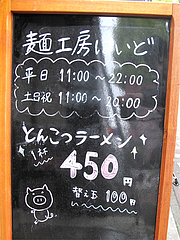 麺工房はいど
平日 11:00〜22:00
土日祝 11:00〜20:00
とんこつラーメン
1杯 450円
替え玉 100円